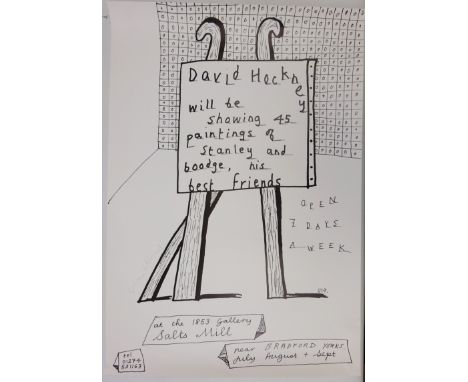 David Hockney
will be
showing 45
paintings of
Stanley and
boodge, his
best friends
OPEN
7 DAYS
A WEEK
at the 1853 Gallery
Salts Mill
near BRADFORD YORKS
July August + Sept
tel
01274
531163